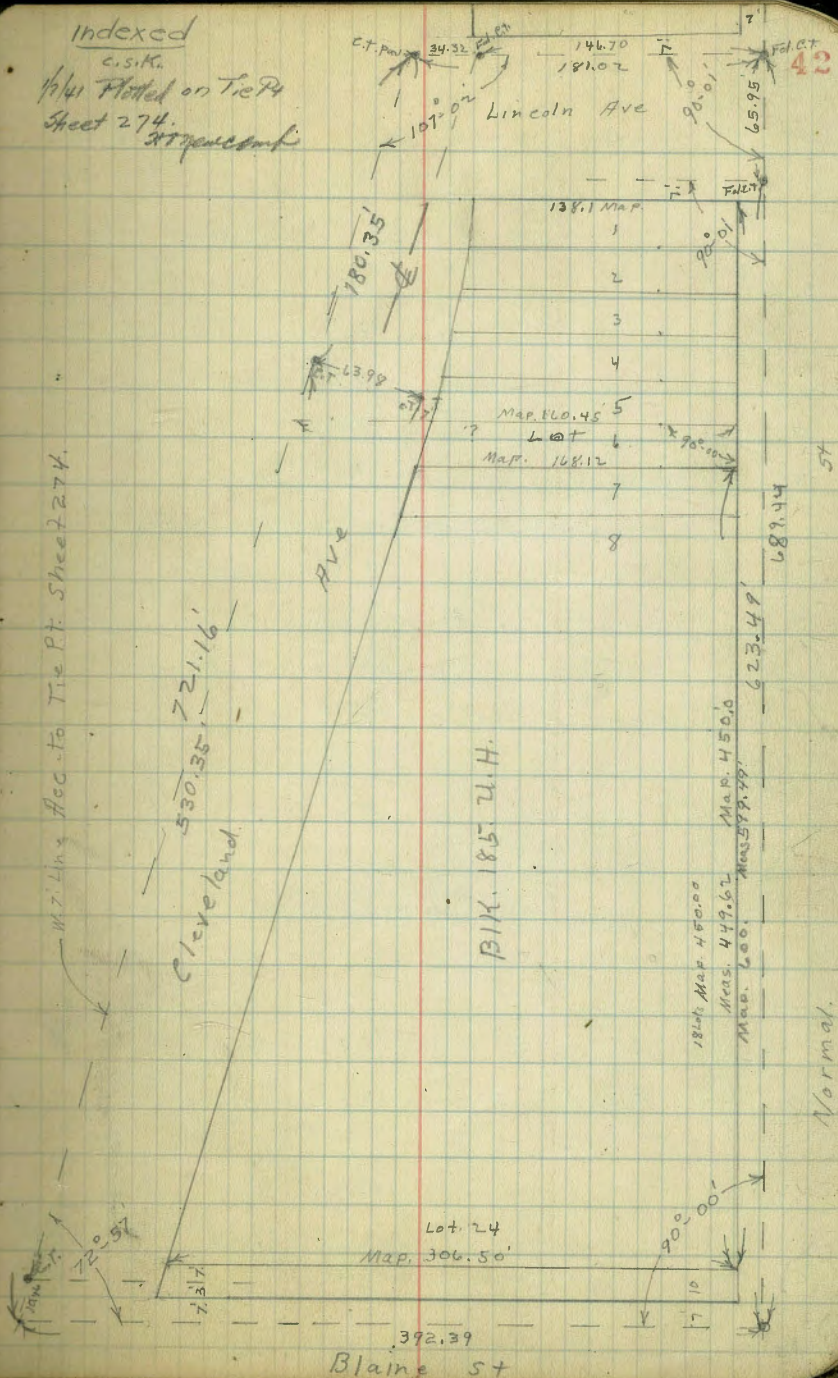 Indexed
C.S.K.
1/7/41 Plotted on Tie Pt
Sheet 274.
42
7'
C.T. Pavt
34.32
Fd. C.T.
146.70
7'
Fd. C.T.
181.02
107° 02'
Lincoln Ave
90°-01'
65.95'
7'
Fd. C.T.
138.1 Map.
90° 01'
1
2
3
4
5
6
7
8
180.35'
℄
C.T.
63.98
C.T.
7'
Map. 160.45
?
Lot
90°-00'
Map. 168.12
St
689.44
623.49'
W. 7' Line Acc. to Tie Pt. Sheet 274.
Ave
721.16'
530.35'
Cleveland
Blk. 185. U.H.
18 Lots Map. 450.00
Meas. 449.62
Map. 450.0
Map. 600.
Meas 599.49'
Normal.
Lot 24
Map. 306.50'
90°-00'
72°-57'
7' 3' 7'
7 10
392.39
Blaine St